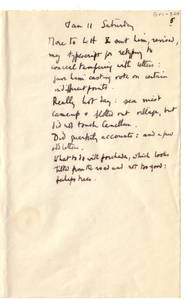 Jan 11 Saturday
More to LH & sent him, review,
my typescript for retyping to
conceal tampering with letters:
gave him casting vote on certain
indifferent points.
Really hot day: sea mist
came up & blotted out village, but
did not touch
Did quarterly accounts: and a few
odd letters.
What to do with porchada, which looks
from the road and not too good:
perhaps trees.
5